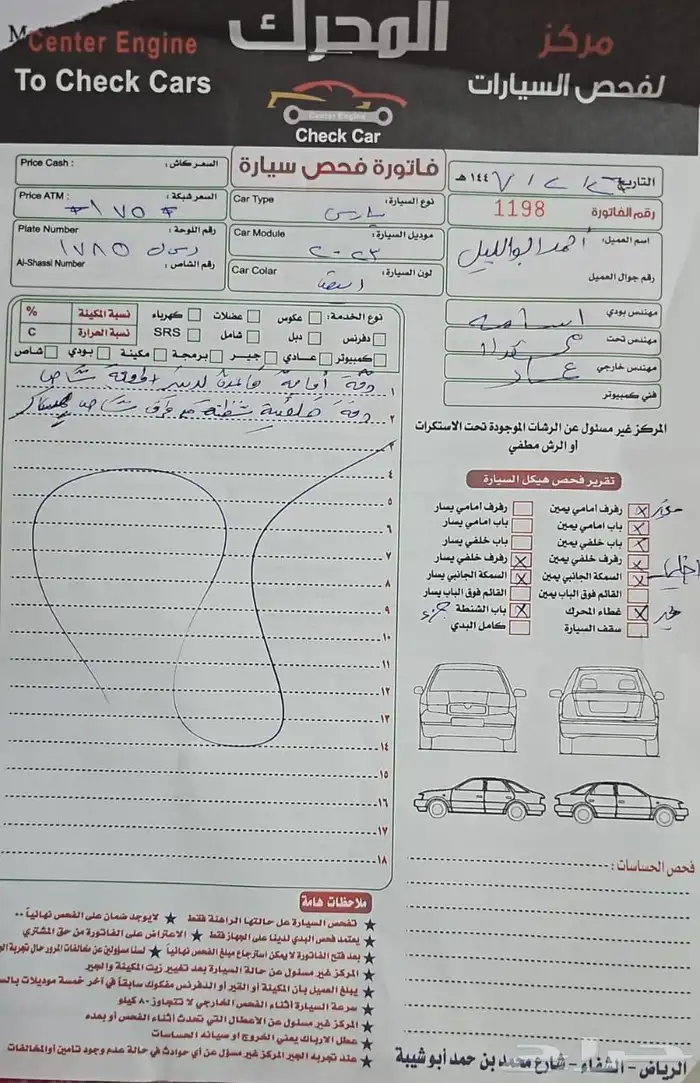 Center Engine
To Check Cars
المحرك
مركز
لفحص السيارات
Center Engine
Check Car
Price Cash :
السعر كاش :
Price ATM :
السعر شبكة :
# ١٧٥ #
Plate Number
رقم اللوحة :
١٧٨٥
Al-Shassi Number
رقم الشاص :
فاتورة فحص سيارة
Car Type
نوع السيارة :
يارس
Car Module
موديل السيارة :
٢٠٢٣
Car Colar
لون السيارة :
التاريخ
١٤٤٧ هـ
رقم الفاتورة
1198
اسم العميل :
أحمد ابو الليل
رقم جوال العميل
مهندس بودي
اسامه
مهندس تحت
مهندس خارجي
عماد
فني كمبيوتر
نوع الخدمة :
عكوس
عضلات
كهرباء
دفرنس
دبل
شامل
SRS
كمبيوتر
عادي
جير
برمجة
مكينة
بودي
شاص
نسبة المكينة
%
نسبة الحرارة
C
١
دقة أمامية
٢
دقة خلفية شنطة
٣
٤
٥
٦
٧
٨
٩
١٠
١١
١٢
١٣
١٤
١٥
١٦
١٧
١٨
المركز غير مسئول عن الرشات الموجودة تحت الاستكرات
أو الرش مطفي
تقرير فحص هيكل السيارة
رفرف امامي يمين
رفرف امامي يسار
باب امامي يمين
باب امامي يسار
باب خلفي يمين
باب خلفي يسار
رفرف خلفي يمين
رفرف خلفي يسار
السمكة الجانبي يمين
السمكة الجانبي يسار
القائم فوق الباب يمين
القائم فوق الباب يسار
غطاء المحرك
باب الشنطة
جزء
سقف السيارة
كامل البدي
فحص الحساسات :
ملاحظات هامة
★ تفحص السيارة عل حالتها الراهنة فقط ★ لايوجد ضمان على الفحص نهائياً
★ يعتمد فحص البدي لدينا على الجهاز فقط ★ الاعتراض على الفاتورة من حق المشتري
★ بعد فتح الفاتورة لا يمكن استرجاع مبلغ الفحص نهائياً ★ لسنا مسؤولين عن مخالفات المرور حال تجربة
★ المركز غير مسئول عن حالة السيارة بعد تغيير زيت المكينة والجير
★ يبلغ العميل بأن المكينة أو القير أو الدفرنس مفكوك سابقاً في آخر خمسة موديلات
★ سرعة السيارة أثناء الفحص الخارجي لا تتجاوز ٨٠ كيلو
★ المركز غير مسئول عن الأعطال التي تحدث أثناء الفحص أو بعده
★ عطل الارباك يعني الخروج أو صيانه الحساسات
★ عند تجربة الجير المركز غير مسؤل عن أي حوادث في حالة عدم وجود تامين أو المخالفات
الرياض - الشفاء - شارع محمد بن حمد أبو شيبة
حراج